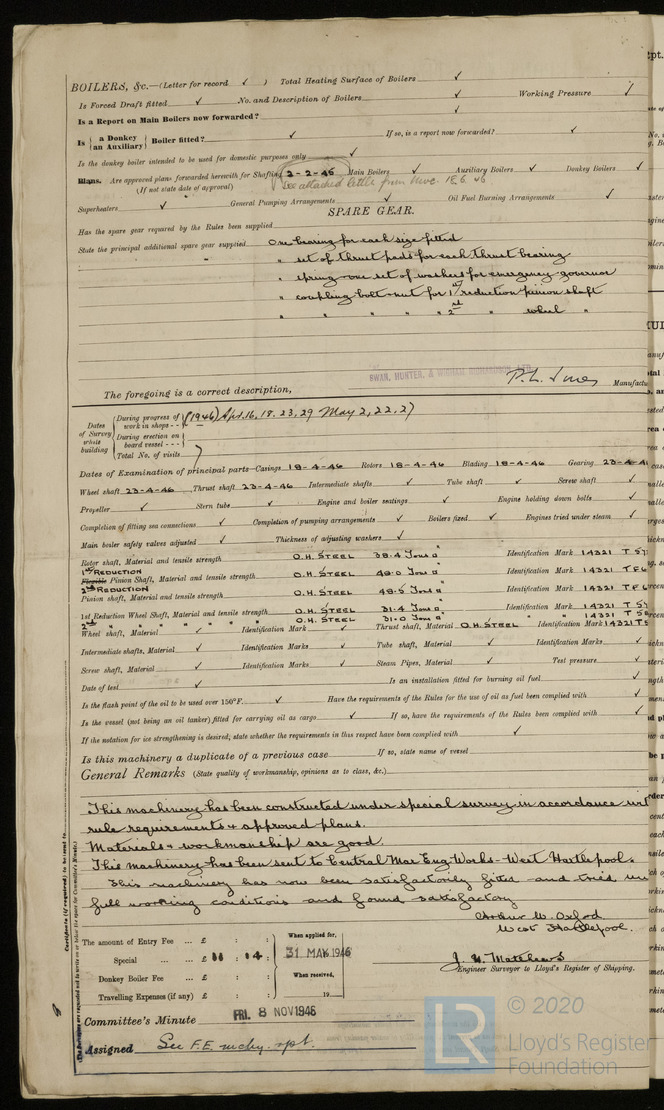 BOILERS, &c.—(Letter for record ✓ ) Total Heating Surface of Boilers ✓
Is Forced Draft fitted ✓ No. and Description of Boilers ✓ Working Pressure ✓
Is a Report on Main Boilers now forwarded? ✓
Is { a Donkey / an Auxiliary } Boiler fitted? ✓ If so, is a report now forwarded? ✓
Is the donkey boiler intended to be used for domestic purposes only ✓
Plans. Are approved plans forwarded herewith for Shafting 2-2-46 Main Boilers ✓ Auxiliary Boilers ✓ Donkey Boilers ✓
(If not state date of approval) See attached letter from
Superheaters ✓ General Pumping Arrangements ✓ Oil Fuel Burning Arrangements ✓
SPARE GEAR.
Has the spare gear required by the Rules been supplied
State the principal additional spare gear supplied One bearing for each size fitted
" set of thrust pads for each thrust bearing
" spring & one set of washers for emergency governor
" coupling bolt & nut for 1st reduction pinion shaft
" " " " " 2nd " wheel "
SWAN, HUNTER, & WIGHAM RICHARDSON, LTD.
The foregoing is a correct description, Manufactu
Dates of Survey while building
During progress of work in shops - - (1946) Apl. 16, 18, 23, 29 May 2, 22, 27
During erection on board vessel - - -
Total No. of visits 7
Dates of Examination of principal parts—Casings 18-4-46 Rotors 18-4-46 Blading 18-4-46 Gearing 23-4-4
Wheel shaft 23-4-46 Thrust shaft 23-4-46 Intermediate shafts ✓ Tube shaft ✓ Screw shaft ✓
Propeller ✓ Stern tube ✓ Engine and boiler seatings ✓ Engine holding down bolts ✓
Completion of fitting sea connections ✓ Completion of pumping arrangements ✓ Boilers fixed ✓ Engines tried under steam ✓
Main boiler safety valves adjusted ✓ Thickness of adjusting washers ✓
Rotor shaft, Material and tensile strength O.H. STEEL 38.4 Tons □" Identification Mark 14321 T
1st REDUCTION
Flexible Pinion Shaft, Material and tensile strength O.H. STEEL 48.0 Tons □" Identification Mark 14321 T F
2nd REDUCTION
Pinion shaft, Material and tensile strength O.H. STEEL 48.5 Tons □" Identification Mark 14321 T F
1st Reduction Wheel Shaft, Material and tensile strength O.H. STEEL 31.4 Tons □" Identification Mark 14321 T
2nd " " " " O.H. STEEL 31.0 Tons □" 14321 T
Wheel shaft, Material ✓ Identification Mark ✓ Thrust shaft, Material O.H. STEEL Identification Mark 14321 T
Intermediate shafts, Material ✓ Identification Marks ✓ Tube shaft, Material ✓ Identification Marks ✓
Screw shaft, Material ✓ Identification Marks ✓ Steam Pipes, Material ✓ Test pressure ✓
Date of test ✓ Is an installation fitted for burning oil fuel ✓
Is the flash point of the oil to be used over 150°F. ✓ Have the requirements of the Rules for the use of oil as fuel been complied with ✓
Is the vessel (not being an oil tanker) fitted for carrying oil as cargo ✓ If so, have the requirements of the Rules been complied with ✓
If the notation for ice strengthening is desired, state whether the requirements in this respect have been complied with ✓
Is this machinery a duplicate of a previous case If so, state name of vessel
General Remarks (State quality of workmanship, opinions as to class, &c.)
This machinery has been constructed under special survey in accordance wit
rule requirements & approved plans.
Materials & workmanship are good.
This machinery has been sent to Central Mar Eng Works - West Hartlepool.
This machinery has now been satisfactorily fitted and tried un
full working conditions and found satisfactory
Arthur W. Oxford
West Hartlepool.
The amount of Entry Fee ... £ : :
Special ... £ : 14 :
Donkey Boiler Fee ... £ : :
Travelling Expenses (if any) £ : :
When applied for,
31 MAY 1946
When received,
19
Engineer Surveyor to Lloyd's Register of Shipping.
Committee's Minute FRI. 8 NOV 1946
Assigned See F.E. mchy. rpt.
Certificate (if required) to be sent to
(The Surveyors are requested not to write on or below the space for Committee's Minute.)
LR
© 2020
Lloyd's Register
Foundation